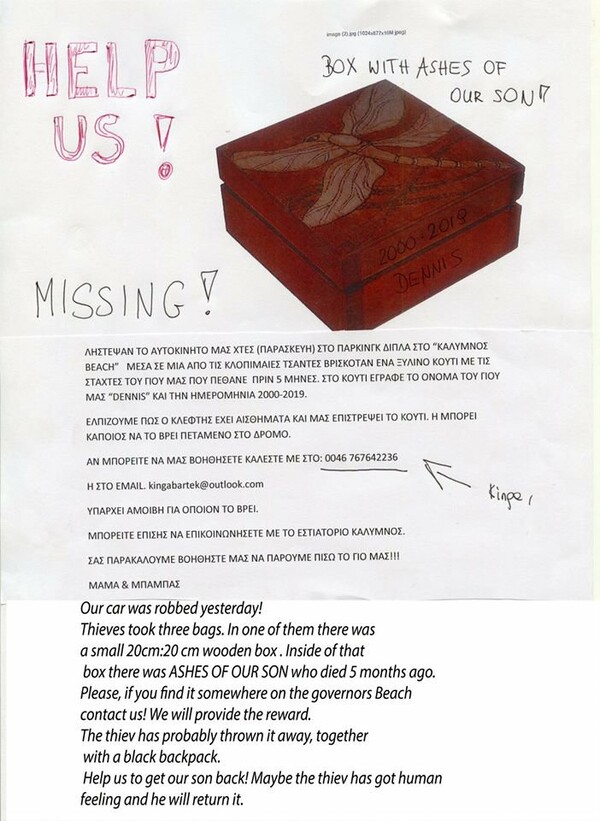 image (2).jpg (1024×877×16M jpeg)
HELP
US !
BOX WITH ASHES OF
OUR SON!
2000-2019
DENNIS
MISSING!
ΛΗΣΤΕΨΑΝ ΤΟ ΑΥΤΟΚΙΝΗΤΟ ΜΑΣ ΧΤΕΣ (ΠΑΡΑΣΚΕΥΗ) ΣΤΟ ΠΑΡΚΙΝΓΚ ΔΙΠΛΑ ΣΤΟ "ΚΑΛΥΜΝΟΣ
BEACH" ΜΕΣΑ ΣΕ ΜΙΑ ΑΠΟ ΤΙΣ ΚΛΟΠΙΜΑΙΕΣ ΤΣΑΝΤΕΣ ΒΡΙΣΚΟΤΑΝ ΕΝΑ ΞΥΛΙΝΟ ΚΟΥΤΙ ΜΕ ΤΙΣ
ΣΤΑΧΤΕΣ ΤΟΥ ΓΙΟΥ ΜΑΣ ΠΟΥ ΠΕΘΑΝΕ ΠΡΙΝ 5 ΜΗΝΕΣ. ΣΤΟ ΚΟΥΤΙ ΕΓΡΑΦΕ ΤΟ ΟΝΟΜΑ ΤΟΥ ΓΙΟΥ
ΜΑΣ "DENNIS" ΚΑΙ ΤΗΝ ΗΜΕΡΟΜΗΝΙΑ 2000-2019.
ΕΛΠΙΖΟΥΜΕ ΠΩΣ Ο ΚΛΕΦΤΗΣ ΕΧΕΙ ΑΙΣΘΗΜΑΤΑ ΚΑΙ ΜΑΣ ΕΠΙΣΤΡΕΨΕΙ ΤΟ ΚΟΥΤΙ. Η ΜΠΟΡΕΙ
ΚΑΠΟΙΟΣ ΝΑ ΤΟ ΒΡΕΙ ΠΕΤΑΜΕΝΟ ΣΤΟ ΔΡΟΜΟ.
ΑΝ ΜΠΟΡΕΙΤΕ ΝΑ ΜΑΣ ΒΟΗΘΗΣΕΤΕ ΚΑΛΕΣΤΕ ΜΕ ΣΤΟ: 0046 767642236
Kinga,
Η ΣΤΟ EMAIL. kingabartek@outlook.com
ΥΠΑΡΧΕΙ ΑΜΟΙΒΗ ΓΙΑ ΟΠΟΙΟΝ ΤΟ ΒΡΕΙ.
ΜΠΟΡΕΙΤΕ ΕΠΙΣΗΣ ΝΑ ΕΠΙΚΟΙΝΩΝΗΣΕΤΕ ΜΕ ΤΟ ΕΣΤΙΑΤΟΡΙΟ ΚΑΛΥΜΝΟΣ.
ΣΑΣ ΠΑΡΑΚΑΛΟΥΜΕ ΒΟΗΘΗΣΤΕ ΜΑΣ ΝΑ ΠΑΡΟΥΜΕ ΠΙΣΩ ΤΟ ΓΙΟ ΜΑΣ!!!
ΜΑΜΑ & ΜΠΑΜΠΑΣ
Our car was robbed yesterday!
Thieves took three bags. In one of them there was
a small 20cm:20 cm wooden box . Inside of that
box there was ASHES OF OUR SON who died 5 months ago.
Please, if you find it somewhere on the governors Beach
contact us! We will provide the reward.
The thiev has probably thrown it away, together
with a black backpack.
Help us to get our son back! Maybe the thiev has got human
feeling and he will return it.